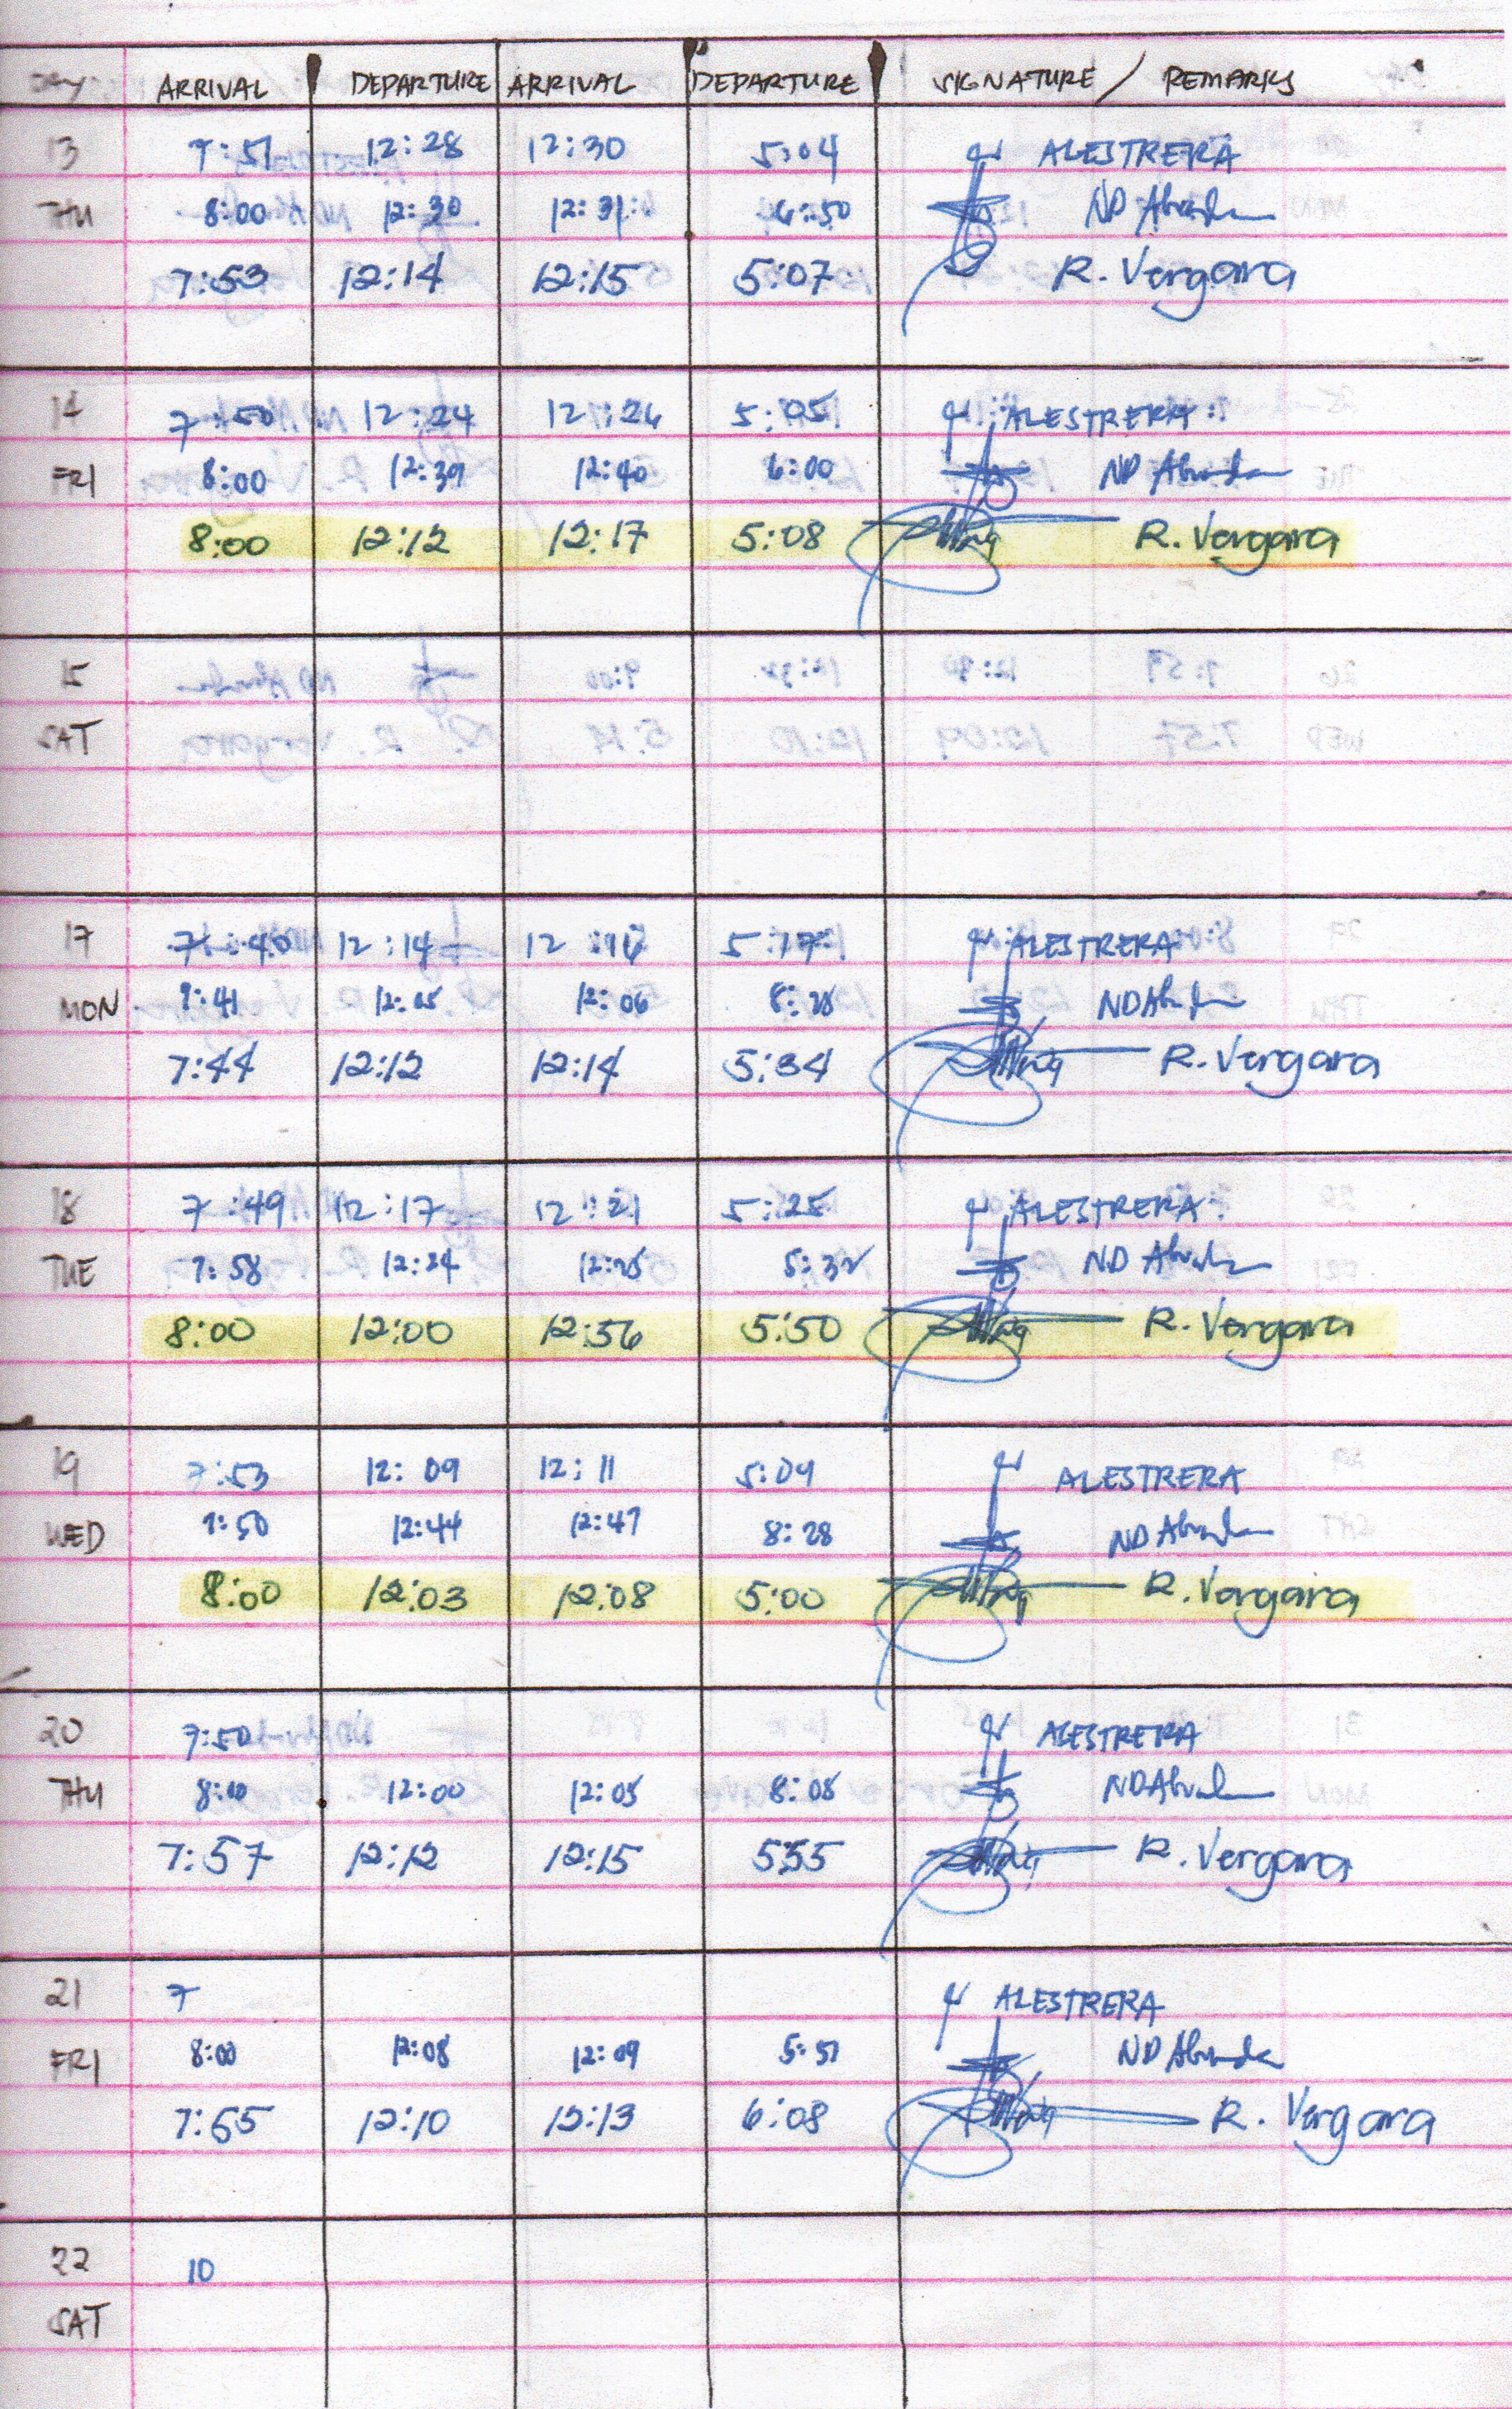 DAY ARRIVAL DEPARTURE ARRIVAL DEPARTURE SIGNATURE / REMARKS
13 7:51 12:28 12:30 5:04 ALESTRERA
THU 8:00 12:30 12:31 6:50 ND
7:53 12:14 12:15 5:07 R. Vergara
14 7:50 12:24 12:26 5:05 ALESTRERA
FRI 8:00 12:39 12:40 6:00 ND
8:00 12:12 12:17 5:08 R. Vergara
15
SAT
17 7:40 12:14 12:16 5:17 ALESTRERA
MON 7:41 12:05 12:06 8:28 ND
7:44 12:12 12:14 5:34 R. Vergara
18 7:49 12:17 12:21 5:25 ALESTRERA
TUE 7:58 12:24 12:25 5:32 ND
8:00 12:00 12:56 5:50 R. Vergara
19 7:53 12:09 12:11 5:09 ALESTRERA
WED 7:50 12:44 12:47 8:28 ND
8:00 12:03 12:08 5:00 R. Vergara
20 7:50 ALESTRERA
THU 8:00 12:00 12:05 8:08 ND
7:57 12:12 12:15 5:55 R. Vergara
21 7 ALESTRERA
FRI 8:00 12:08 12:09 5:51 ND
7:55 12:10 12:13 6:08 R. Vergara
22 10
SAT